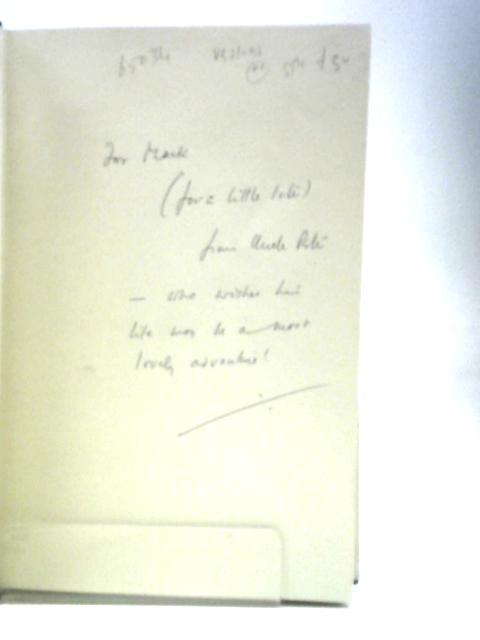 For Mark
(for a little
from Uncle
— who wishes his
life may be a most
lovely adventure!